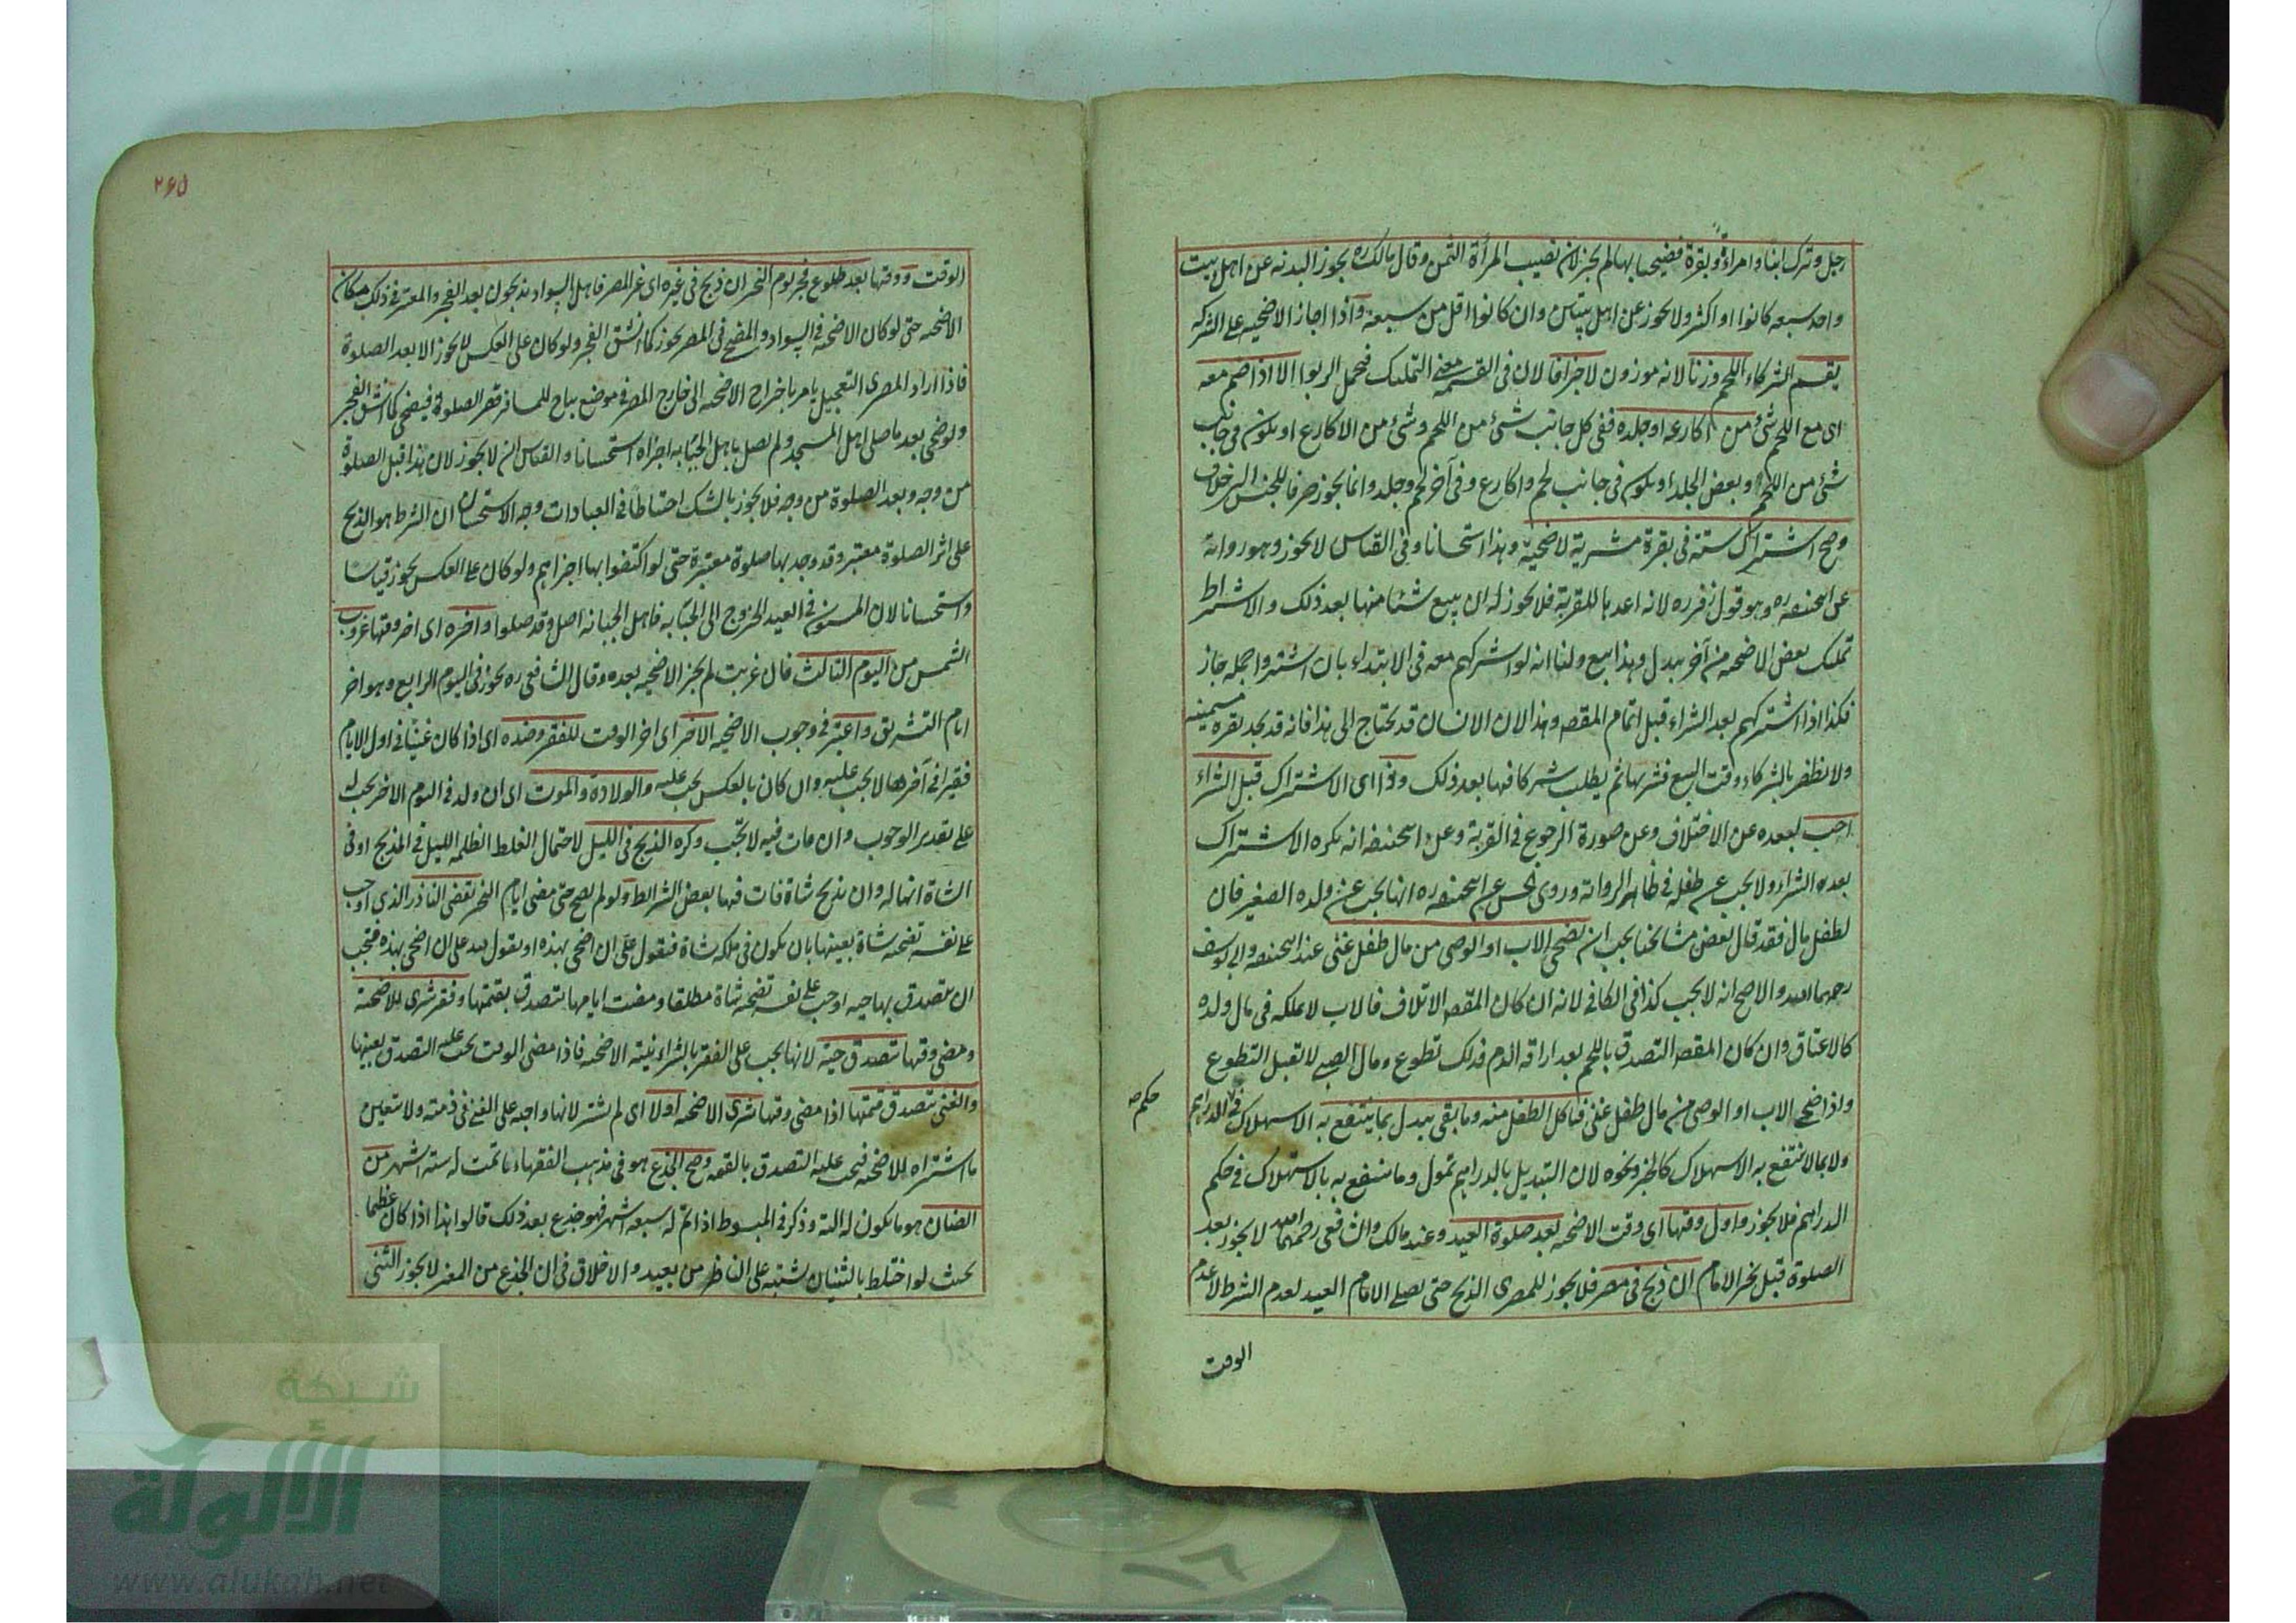 رجل وترك ابنا وامراة وبقرة فضحيا بها لم يجز لان نصيب المرأة الثمن وقال مالك ره يجوز البدنه عن اهل بيت
واحد سبعه كانوا او اكثر ولا يجوز عن اهل بيتين وان كانوا اقل من سبعة واذا اجاز الاضحيه على الشركه
يقسم الشركاء اللحم وزنا لانه موزون لا جزافا لان في القسمه معنى التمليك فيحمل الربوا الا اذا ضم معه
اى مع اللحم شئ من اكارعه او جلده ففى كل جانب شئ من اللحم وشئ من الاكارع او يكون فى جانب
شئ من اللحم وبعض الجلد او يكون فى جانب لحم واكارع وفى آخر لحم وجلد وانما يجوز صرفا للجنس الى خلاف
وصح اشتراك ستة فى بقرة مشرية لاضحية وهذا استحسانا وفى القياس لا يجوز وهو رواية
عن ابيحنيفه ره وهو قول زفر ره لانه اعدها للقربة فلا يجوز له ان يبيع شئا منها بعد ذلك والاشراط
تمليك بعض الاضحيه من آخر ببدل وهذا بيع ولنا انه لو اشركهم معه فى الابتداء بان اشتروا جمله جاز
فكذا اذا اشتركهم بعد الشراء قبل اتمام المقصد وهذا لان الانسان قد يحتاج الى هذا فانه قد يجد بقرة سمينه
ولا يظفر بالشركاء وقت البيع فشريها ثم يطلب شركا فيها بعد ذلك وذا اى الاشتراك قبل الشراء
احب لبعده عن الاختلاف وعن صورة الرجوع فى القربة وعن ابيحنيفه انه يكره الاشتراك
بعد الشراء ولا يجب عن طفله فى ظاهر الرواية وروى الحسن عن ابيحنيفه ره انها يجب عن ولده الصغير فان
لطفل مال فقد قال بعض مشائخنا يجب ان يضحى الاب او الوصى من مال طفل غنى عند ابيحنيفه وابى يوسف
رحمهما الله والاصح انه لا يجب كذا فى الكافى لانه ان كان المقصد الاتلاف فالاب لا يملكه فى مال ولده
كالاعتاق وان كان المقصد التصدق باللحم بعد اراقه الدم فذلك تطوع ومال الصبى لا تقبل التطوع
واذا ضحى الاب او الوصى من مال طفل غنى فياكل الطفل منه وما بقى يبدل بما ينتفع به الاستهلاك فى الدراهم
حكم صه
ولا بما لا ينتفع به الاستهلاك كالخبز ونحوه لان التبديل بالدراهم تمول وما ينتفع به بالاستهلاك فى حكم
الدراهم فلا يجوز واول وقتها اى وقت الاضحيه بعد صلوة العيد وعند مالك والشافعى رحمهما الله لا يجوز بعد
الصلوة قبل نحر الامام ان ذبح فى مصر فلا يجوز للمصرى الذبح حتى يصلى الامام العيد لعدم الشرط لا لعدم
الوقت
٢٦٥
الوقت ووقتها بعد طلوع فجر يوم النحر ان ذبح فى غيره اى غير المصر فاهل السواد يذبحون بعد الفجر والمعتبر فى ذلك مكان
الاضحيه حتى لو كان الاضحيه فى السواد والمضحى فى المصر يجوز كما انشق الفجر ولو كان على العكس لا يجوز الا بعد الصلوة
فاذا اراد المصرى التعجيل يامر باخراج الاضحيه الى خارج المصر فى موضع يباح للمسافر قصر الصلوة فيه فيضحى كما انشق الفجر
ولو ضحى بعد ما صلى اهل المسجد ولم يصل باهل الجبانه اجزاه استحسانا والقياس ان لا يجوز لان هذا قبل الصلوة
من وجه وبعد الصلوة من وجه فلا يجوز بالشك احتياطا فى العبادات وجه الاستحسان ان الشرط هو الذبح
على اثر الصلوة معتبر وقد وجد بها صلوة معتبرة حتى لو اكتفوا بها اجزاهم ولو كان على العكس يجوز قياسا
واستحسانا لان المسنون فى العيد الخروج الى الجبانه فاهل الجبانه اصل وقد صلوا واخره اى اخر وقتها غروب
الشمس من اليوم الثالث فان غربت لم يجز الاضحيه بعده وقال الشافعى ره يجوز فى اليوم الرابع وهو اخر
ايام التشريق واعتبر فى وجوب الاضحيه الاخر اى اخر الوقت للفقر وضده اى اذا كان غنيا فى اول الايام
فقيرا فى آخرها لا يجب عليه وان كان بالعكس يجب عليه والولادة والموت اى ان ولد فى اليوم الاخر يجب له
على تقدير الوجوب وان مات فيه لا تجب وكره الذبح فى الليل لاحتمال الغلط لظلمه الليل فى المذبح او فى
الشاة انها له وان يذبح شاة فات فيها بعض الشرائط ولو لم يضح حتى مضى ايام النحر تقضى الناذر الذى اوجب
على نفسه تضحيه شاة بعينها بان يكون فى ملكه شاة فيقول على ان اضحى بهذه او يقول لله على ان اضحى بهذه فيجب
ان يتصدق بها حيه اوجب على نفسه تضحيه شاة مطلقا ومضت ايامها يتصدق بقيمتها وفقير شرى للاضحية
ومضى وقتها تتصدق حية لانها يجب على الفقير بالشراء بنيته الاضحيه فاذا مضى الوقت يجب عليه التصدق بعينها
والغنى يتصدق قيمتها اذا مضى وقتها شرى الاضحيه اولا اى لم يشتر لانها واجبه على الغنى فى ذمته ولا يتعين
ما اشتراه للاضحيه فيجب عليه التصدق بالقيمه وصح الجذع هو فى مذهب الفقهاء ما تمت له ستة اشهر من
الضان هو ما يكون له الية وذكر فى المبسوط اذا تم له سبعه اشهر فهو جذع بعد ذلك قالوا هذا اذا كان عظيما
بحيث لو اختلط بالثنيان يشتبه على الناظر من بعيد والاخلاق فى ان الجذع من المعز لا يجوز الثنى
شبكة
الألوكة
www.alukah.net